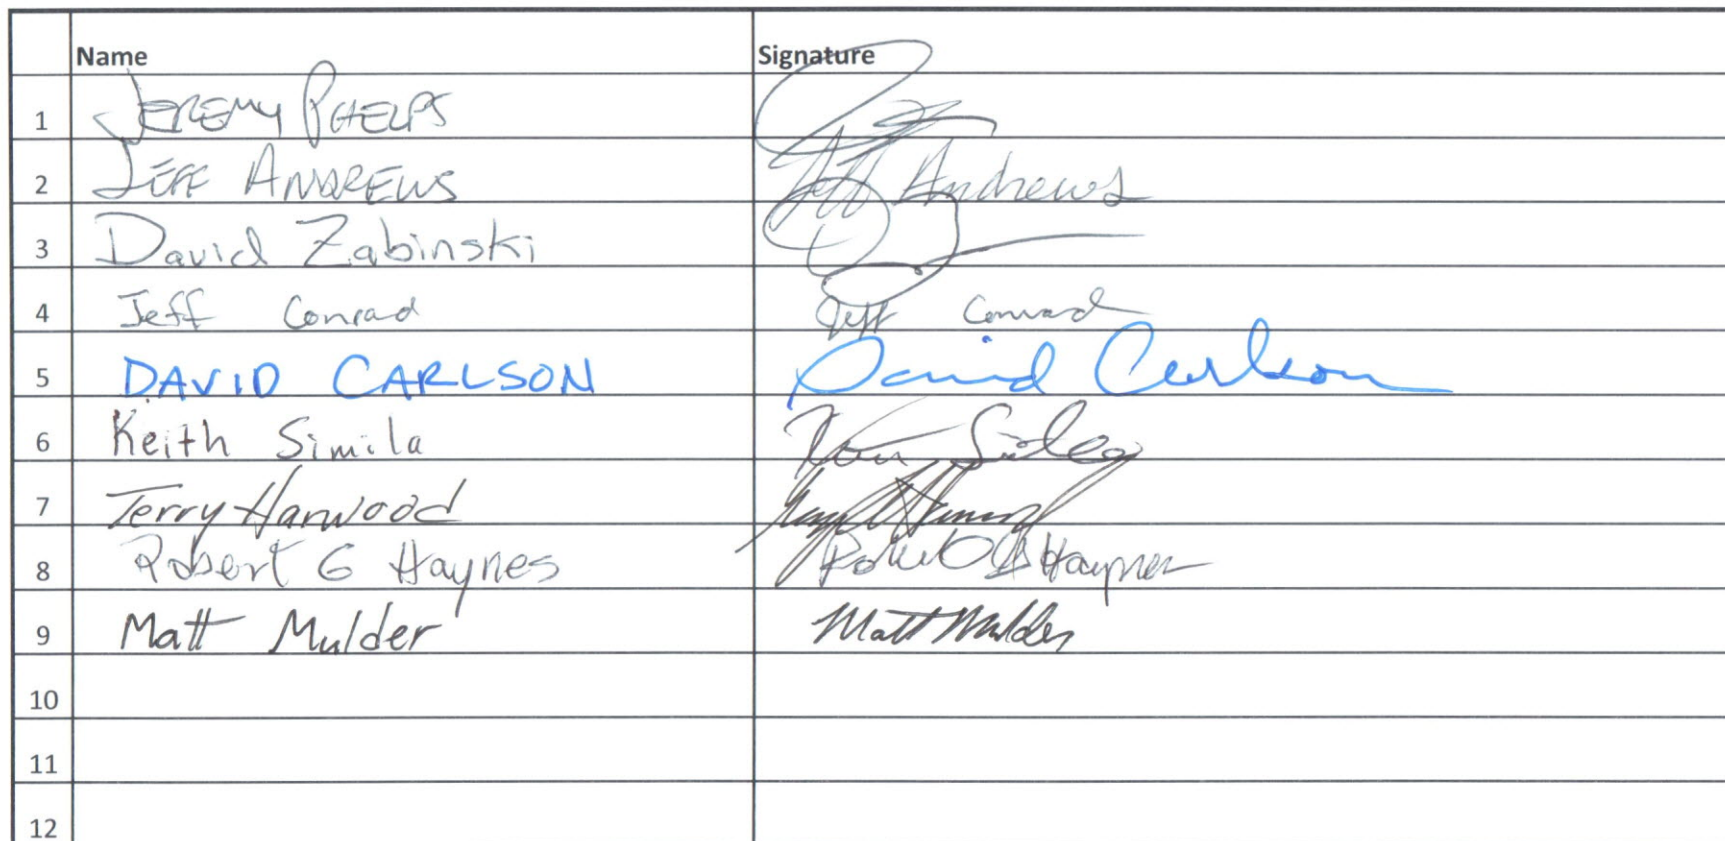 Name Signature
1 JEREMY PHELPS
2 JEFF ANDREWS Jeff Andrews
3 David Zabinski
4 Jeff Conrad Jeff Conrad
5 DAVID CARLSON David Carlson
6 Keith Simila
7 Terry Harwood
8 Robert G Haynes Robert G Haynes
9 Matt Mulder Matt Mulder
10
11
12